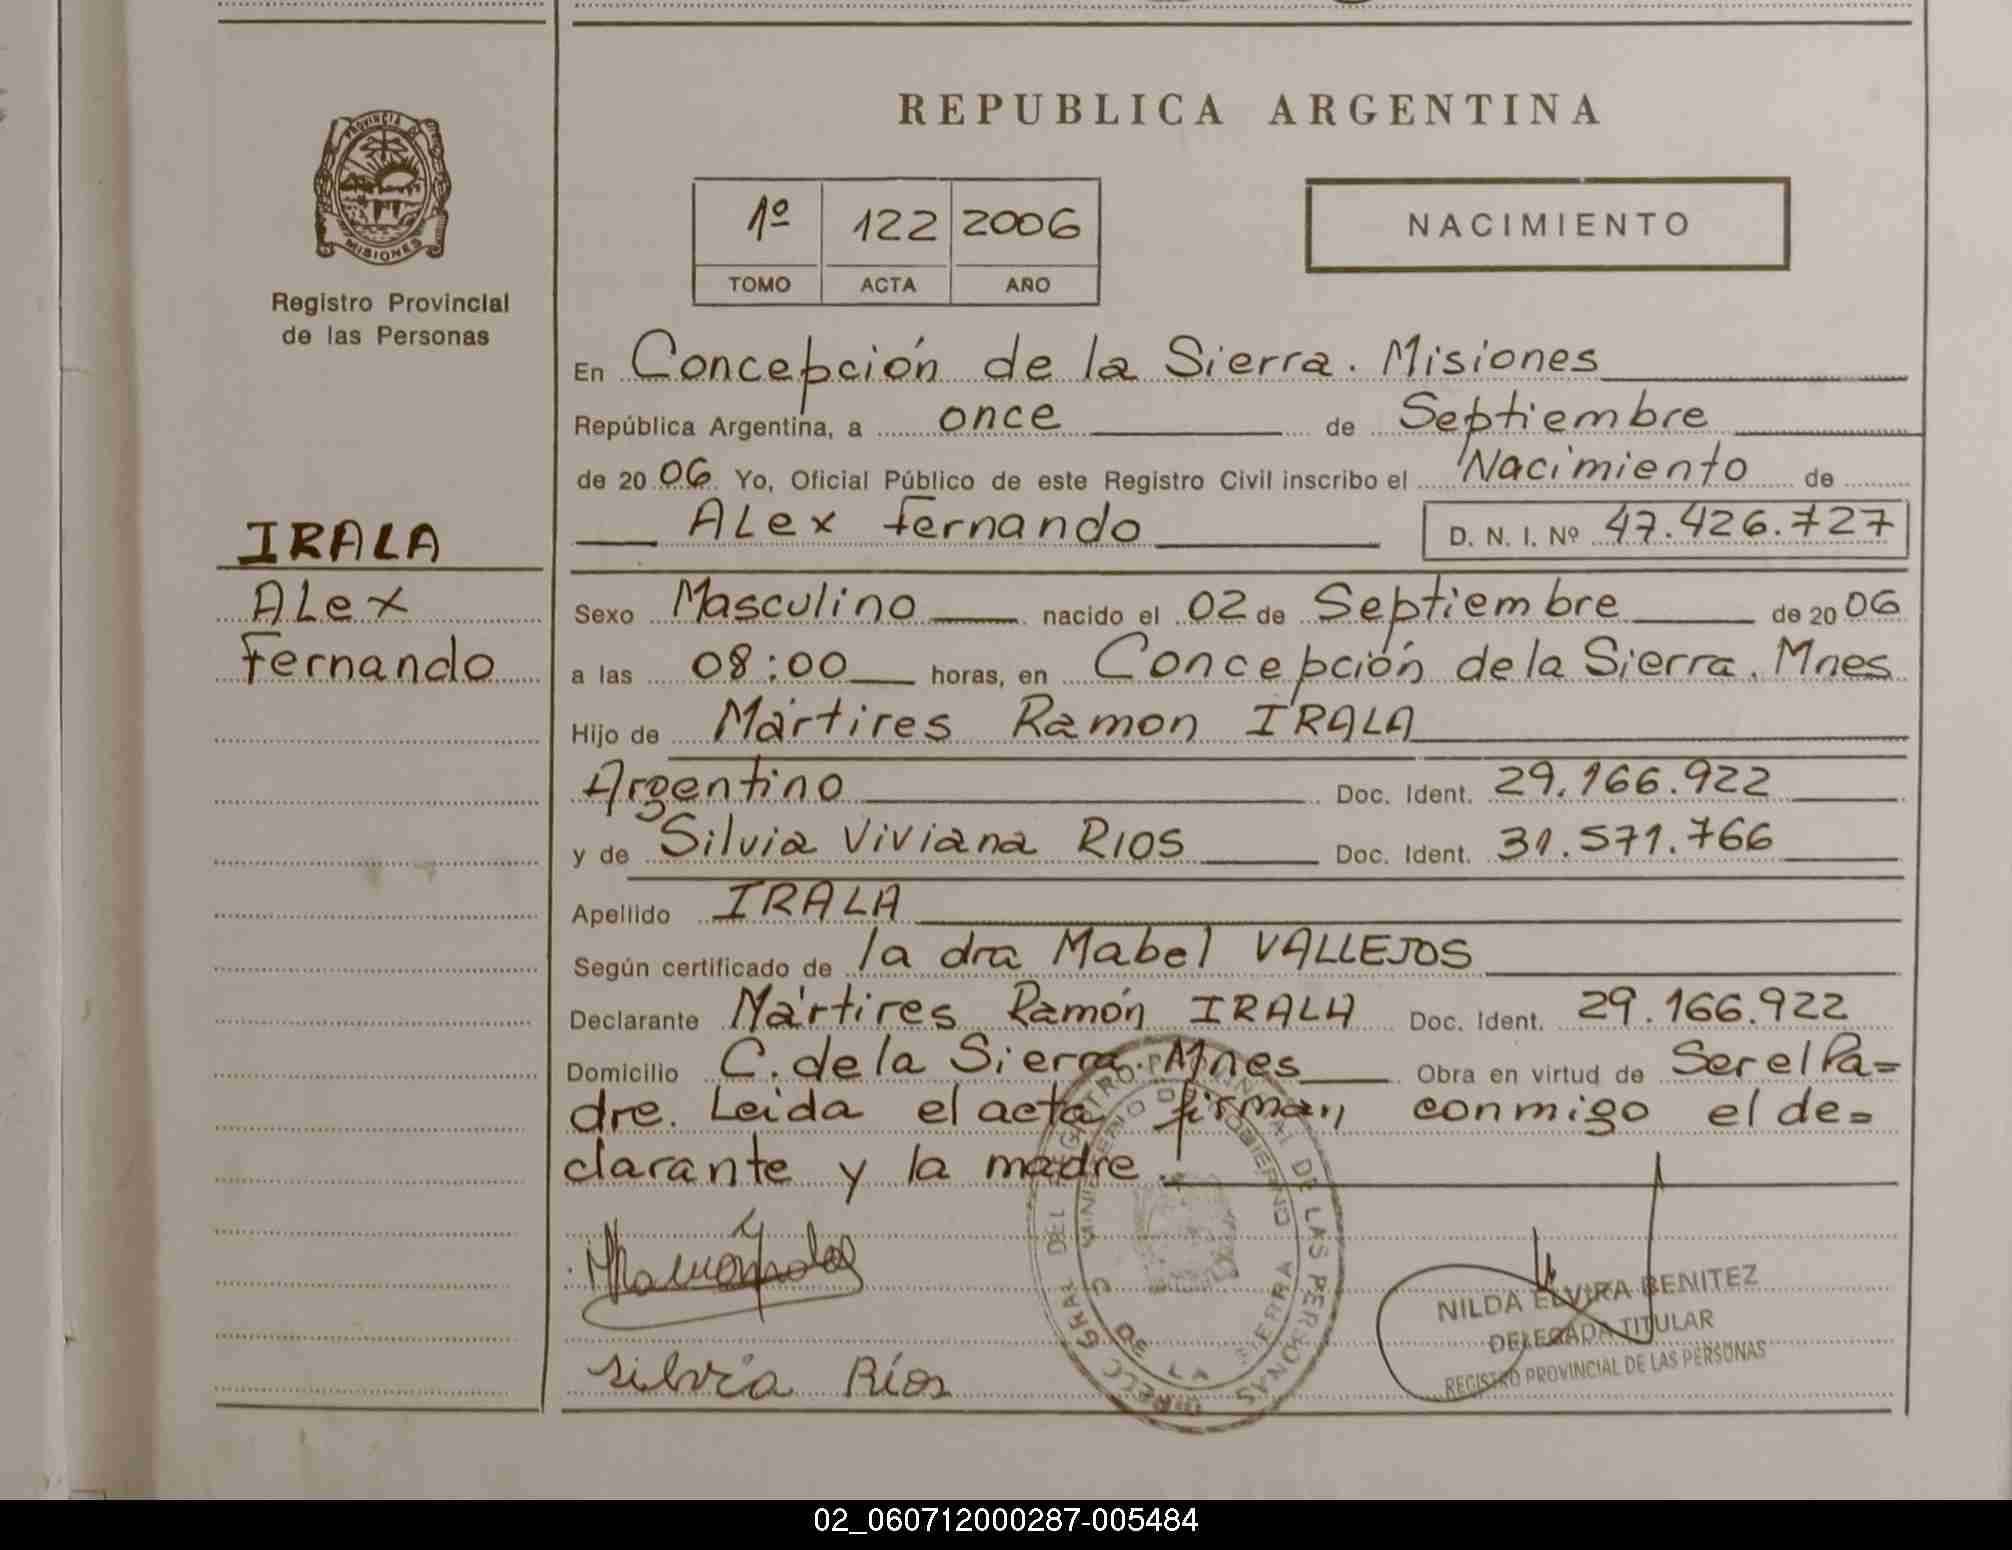 PROVINCIA DE
MISIONES
Registro Provincial
de las Personas
IRALA
ALex
Fernando
REPUBLICA ARGENTINA
1º 122 2006
TOMO ACTA AÑO
NACIMIENTO
En Concepción de la Sierra. Misiones
República Argentina, a once de Septiembre
de 2006 Yo, Oficial Público de este Registro Civil inscribo el Nacimiento de
ALex Fernando D. N. I. Nº 47.426.727
Sexo Masculino nacido el 02 de Septiembre de 2006
a las 08:00 horas, en Concepción de la Sierra. Mnes
Hijo de Mártires Ramon IRALA
Argentino Doc. Ident. 29.166.922
y de Silvia Viviana RIOS Doc. Ident. 31.571.766
Apellido IRALA
Según certificado de la dra Mabel VALLEJOS
Declarante Mártires Ramón IRALA Doc. Ident. 29.166.922
Domicilio C. de la Sierra. Mnes Obra en virtud de Ser el Pa=
dre. Leida el acta firman conmigo el de=
clarante y la madre.
Silvia Ríos
DIRECC GRAL DEL REGISTRO PROVINCIAL DE LAS PERSONAS
MINISTERIO DE GOBIERNO
C DE LA SIERRA
NILDA ELVIRA BENITEZ
DELEGADA TITULAR
REGISTRO PROVINCIAL DE LAS PERSONAS
02_060712000287-005484